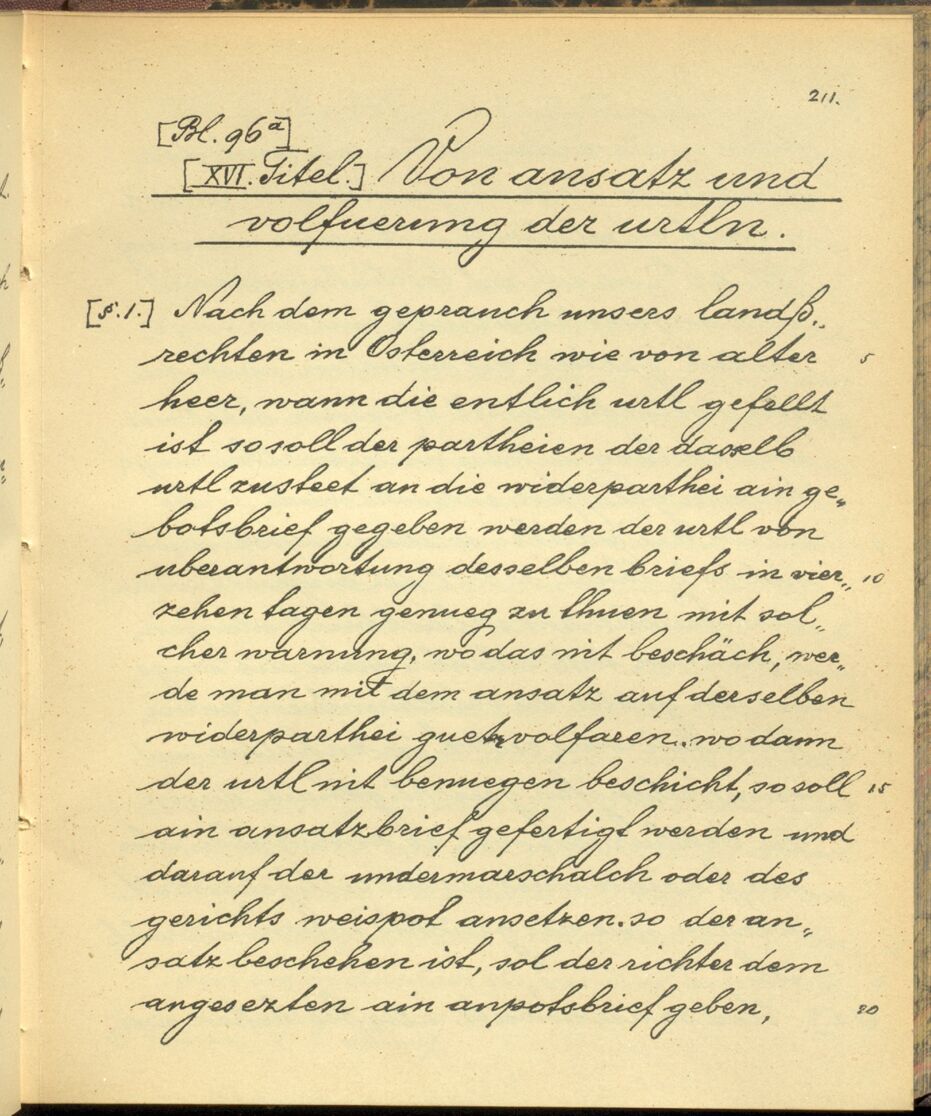 211.
[Bl. 96a]
[XVI. Titel.] Von ansatz und
volfuerung der urtln.
[§. 1.] Nach dem geprauch unsers landß„
rechten in Osterreich wie von alter 5
heer, wann die entlich urtl gefellt
ist so soll der partheien der dasselb
urtl zusteet an die widerparthei ain ge„
botsbrief gegeben werden der urtl von
uberantwortung desselben briefs in vier„ 10
zehen tagen genueg zu thuen mit sol„
cher warnung, wo das nit beschäch, wer„
de man mit dem ansatz auf derselben
widerparthei guet volfaren. wo dann
der urtl nit benuegen beschicht, so soll 15
ain ansatzbrief gefertigt werden und
darauf der undermarschalch oder des
gerichts weispot ansetzen. so der an„
satz beschehen ist, sol der richter dem
angesezten ain anpotsbrief geben, 20